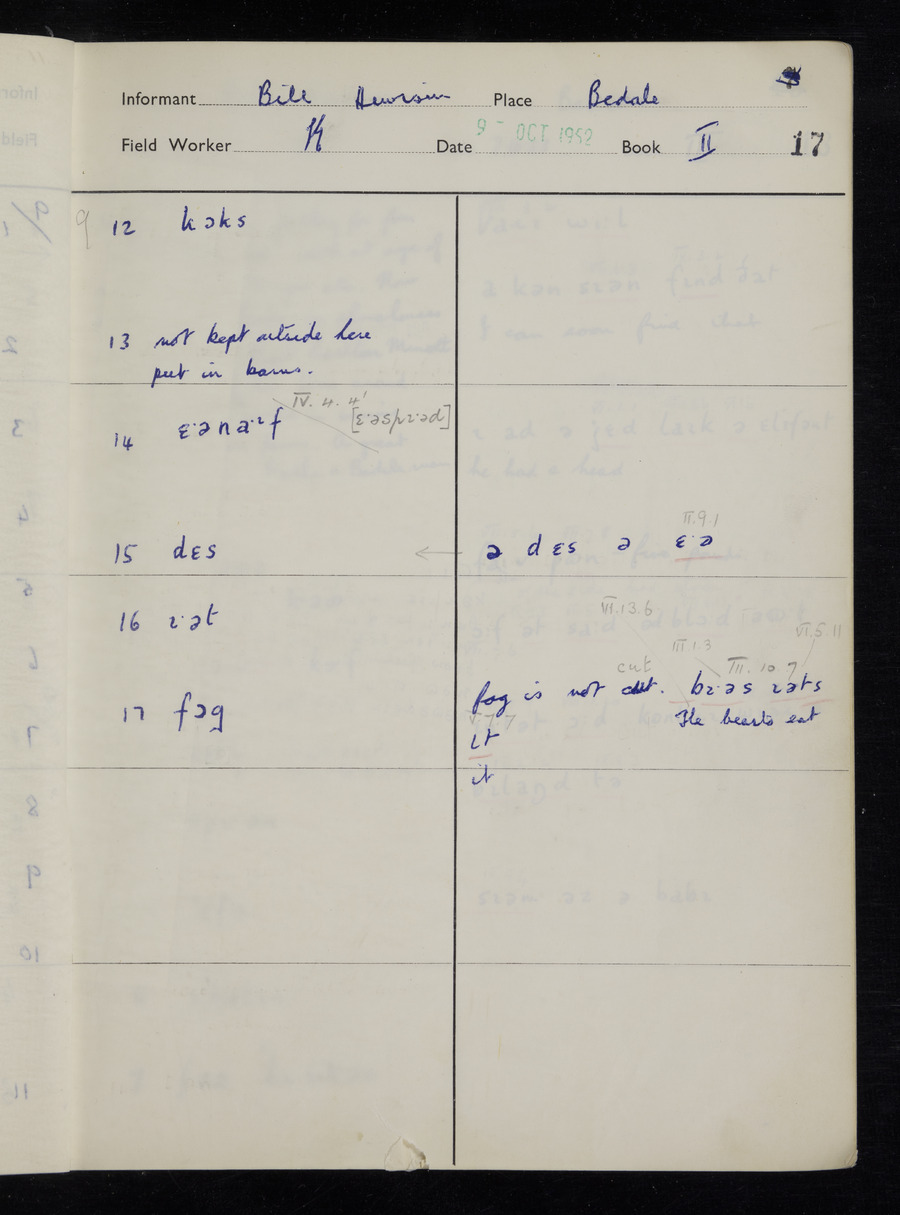 Informant Bill Place Bedale
Field Worker Date 9 - OCT 1952 Book II 17
9 12 kɔks
13 not kept outside here
put in barns.
IV. 4. 4'
14 ɛ·ənaˑɪf
II.9.1
15 dɛs ← ə dɛs ə ɛ·ə
VI.13.6
VI.5.11
16 ɪ·ət
III.1.3
cut III. 10 7
17 fɔg fog is not cut. bɪ·əs ɪəts
V.7.7 The beasts eat
ɪt
it